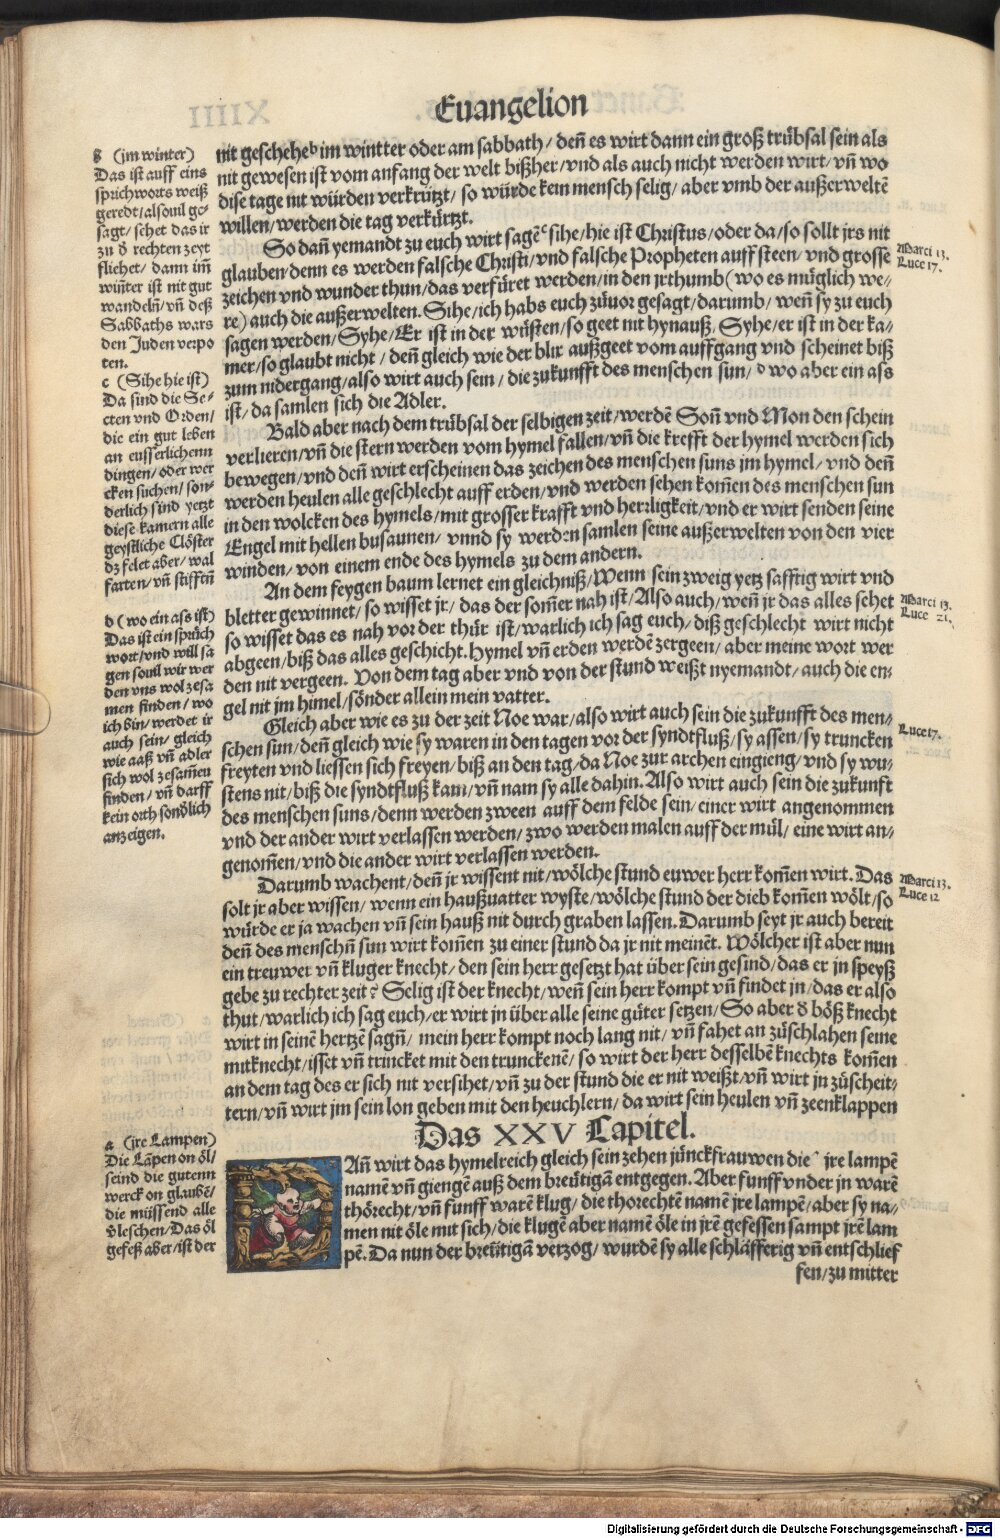 Euangelion
nit gescheheᵇ im wintter oder am sabbath/ deñ es wirt dann ein groß trübsal sein als
nit gewesen ist vom anfang der welt bißher/vnd als auch nicht werden wirt/vñ wo
dise tage nit würden verkrützt/ so würde kein mensch selig/ aber vmb der außerweltē
willen/werden die tag verkürtzt.
So dañ yemandt zu euch wirt sagēᶜsihe/hie ist Christus/oder da/so sollt jrs nit
glauben/denn es werden falsche Christi/vnd falsche Propheten auff steen/ vnd grosse
zeichen vnd wunder thun/das verfüret werden/in den jrthumb(wo es müglich we⸗
re) auch die außerwelten. Sihe/ich habs euch zůuor gesagt/darumb/ weñ sy zu euch
sagen werden/Syhe/Er ist in der wüsten/so geet nit hynauß, Syhe/er ist in der ka⸗
mer/so glaubt nicht/ deñ gleich wie der blix außgeet vom auffgang vnd scheinet biß
zum nidergang/also wirt auch sein/die zukunfft des menschen sun/ ᵈ wo aber ein ass
ist/da samlen sich die Adler.
Bald aber nach dem trübsal der selbigen zeit/werdē Soñ vnd Mon den schein
verlieren/vñ die stern werden vom hymel fallen/vñ die krefft der hymel werden sich
bewegen/vnd deñ wirt erscheinen das zeichen des menschen suns jm hymel/ vnd deñ
werden heulen alle geschlecht auff erden/vnd werden sehen kom̃en des menschen sun
in den wolcken des hymels/mit grosser krafft vnd herrligkeit/vnd er wirt senden seine
Engel mit hellen busaunen/ vnnd sy werden samlen seine außerwelten von den vier
winden/von einem ende des hymels zu dem andern.
An dem feygen baum lernet ein gleichniß/Wenn sein zweig yetz safftig wirt vnd
bletter gewinnet/so wisset jr/ das der som̃er nah ist/Also auch/weñ jr das alles sehet
so wisset das es nah vor der thür ist/warlich ich sag euch/diß geschlecht wirt nicht
abgeen/biß das alles geschicht. Hymel vñ erden werdē zergeen/ aber meine wort wer
den nit vergeen. Von dem tag aber vnd von der stund weißt nyemandt/auch die en⸗
gel nit jm himel/sönder allein mein vatter.
Gleich aber wie es zu der zeit Noe war/also wirt auch sein die zukunfft des men⸗
schen sun/deñ gleich wie sy waren in den tagen vor der syndtfluß/sy assen/sy truncken
freyten vnd liessen sich freyen/biß an den tag/da Noe zur archen eingieng/vnd sy wu⸗
stens nit/biß die syndtfluß kam/vñ nam sy alle dahin. Also wirt auch sein die zukunft
des menschen suns/denn werden zween auff dem felde sein/einer wirt angenommen
vnd der ander wirt verlassen werden/zwo werden malen auff der mül/eine wirt an⸗
genom̃en/vnd die ander wirt verlassen werden.
Darumb wachent/deñ jr wissent nit/wölche stund euwer herr kom̃en wirt. Das
solt jr aber wissen/wenn ein haußuatter wyste/wölche stund der dieb kom̃en wölt/so
würde er ja wachen vñ sein hauß nit durch graben lassen. Darumb seyt jr auch bereit
deñ des menschñ sun wirt kom̃en zu einer stund da jr nit meinēt. Wölcher ist aber nun
ein treuwer vñ kluger knecht/den sein herr gesetzt hat über sein gesind/das er jn speyß
gebe zu rechter zeit? Selig ist der knecht/weñ sein herr kompt vñ findet jn/das er also
thut/warlich ich sag euch/er wirt jn über alle seine güter setzen/So aber ð böß knecht
wirt in seinē hertzē sagñ/ mein herr kompt noch lang nit/vñ fahet an zůschlahen seine
mitknecht/isset vñ trincket mit den trunckenē/so wirt der herr desselbē knechts kom̃en
an dem tag des er sich nit versihet/vñ zu der stund die er nit weißt/vñ wirt jn zůscheit⸗
tern/vñ wirt jm sein lon geben mit den heuchlern/da wirt sein heulen vñ zeenklappen
Das XXV Capitel.
Añ wirt das hymelreich gleich sein zehen jünckfrauwen dieᵃ jre lampē
namē vñ giengē auß dem breütigā entgegen. Aber funff vnder jn warē
thörecht/vñ funff warē klug/ die thorechtē namē jre lampē/aber sy na⸗
men nit öle mit sich/die klugē aber namē öle in jrē gefessen sampt jrē lam
pē. Da nun der breütigā verzog/wurdē sy alle schläfferig vñ entschlief
fen/zu mitter
b (jm winter)
Das ist auff eins
sprichworts weiß
geredt/alsouil ge⸗
sagt/sehet das ir
zu ð rechten zeyt
fliehet/ dann im̃
wiñter ist nit gut
wandelñ/vñ deß
Sabbaths wars
den Juden verpo
ten.
c (Sihe hie ist)
Da sind die Se⸗
cten vnd Orden/
die ein gut leben
an eusserlichenn
dingen/oder wer
cken suchen/son⸗
derlich sind yetzt
diese kamern alle
geystliche Clöster
dz felet aber/wal
farten/vñ stifftñ
d (wo ein ass ist)
Das ist ein sprüch
wort/vnd will sa
gen souil wir wer
den vns wol zesa
men finden/ wo
ich bin/werdet ir
auch sein/gleich
wie aaß vñ adler
sich wol zesam̃en
finden/ vñ darff
kein orth sonðlich
anzeigen.
a (jre Lampen)
Die Lāpen on öl/
seind die gutenn
werck on glaubē/
die müssend alle
ðleschen/Das öl
gefeß aber/ist der
Marci 13.
Luce 17.
Marci 13.
Luce 21.
Luce 17.
Marci 13.
Luce 12
Digitalisierung gefördert durch die Deutsche Forschungsgemeinschaft - DFG